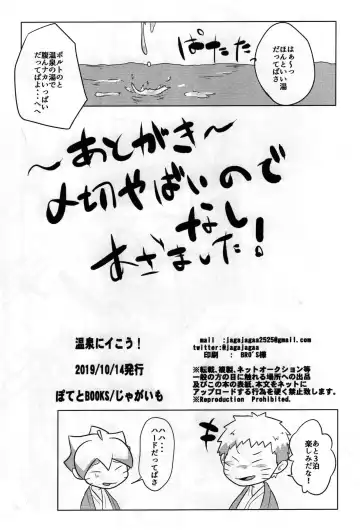 はぁ〜っ
ほんといい湯
だってばさ
ぱたた
ボルトのと
温泉の湯で
腹んナカいっぱい
だってばよ・・へへ
〜あとがき〜
〆切やばいので
なし
あざました!
温泉にイこう!
2019/10/14発行
ぽてとBOOKS/じゃがいも
mail :jagajagaa2525@gmail.com
twitter:@jagajagaa
印刷 : BRO'S様
※転載、複製、ネットオークション等
一般の方の目に触れる場所への出品
及びこの本の表紙、本文をネットに
アップロードする行為を硬く禁止致します。
※Reproduction Prohibited.
あと3泊
楽しみだな!
ハハ・・・
ハードだってばさ